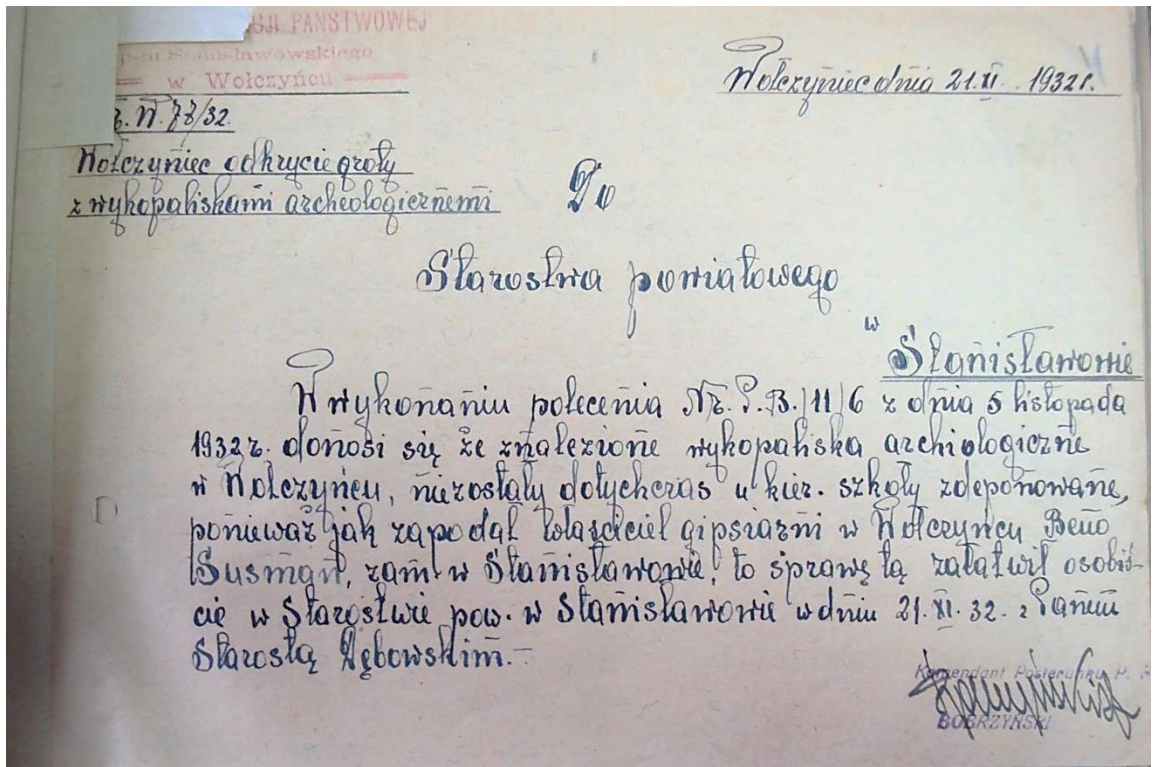 CJI PAŃSTWOWEJ
Stanisławowskiego
w Wołczyńcu
Wołczyniec dnia 21.XI. 1932 r.
4
/32.
Wołczyniec odkrycie groty
z wykopaliskami archeologicznemi
Do
Starostwa powiatowego
w
Stanisławowie
W wykonaniu polecenia Nr. P.B./11/6 z dnia 5 listopada
1932 r. donosi się że znalezione wykopaliska archiologiczne
w Wołczyńcu, niezostały dotychczas u kier. szkoły zdeponowane,
ponieważ jak zapodał właściciel gipsiarni w Wołczyńcu Beno
Susman, zam. w Stanisławowie, to sprawę tą załatwił osobiś-
cie w Starostwie pow. w Stanisławowie w dniu 21.XI.32. z Panem
Starostą Dębowskim.-
Komendant Posterunku P. P.
BOBRZYŃSKI